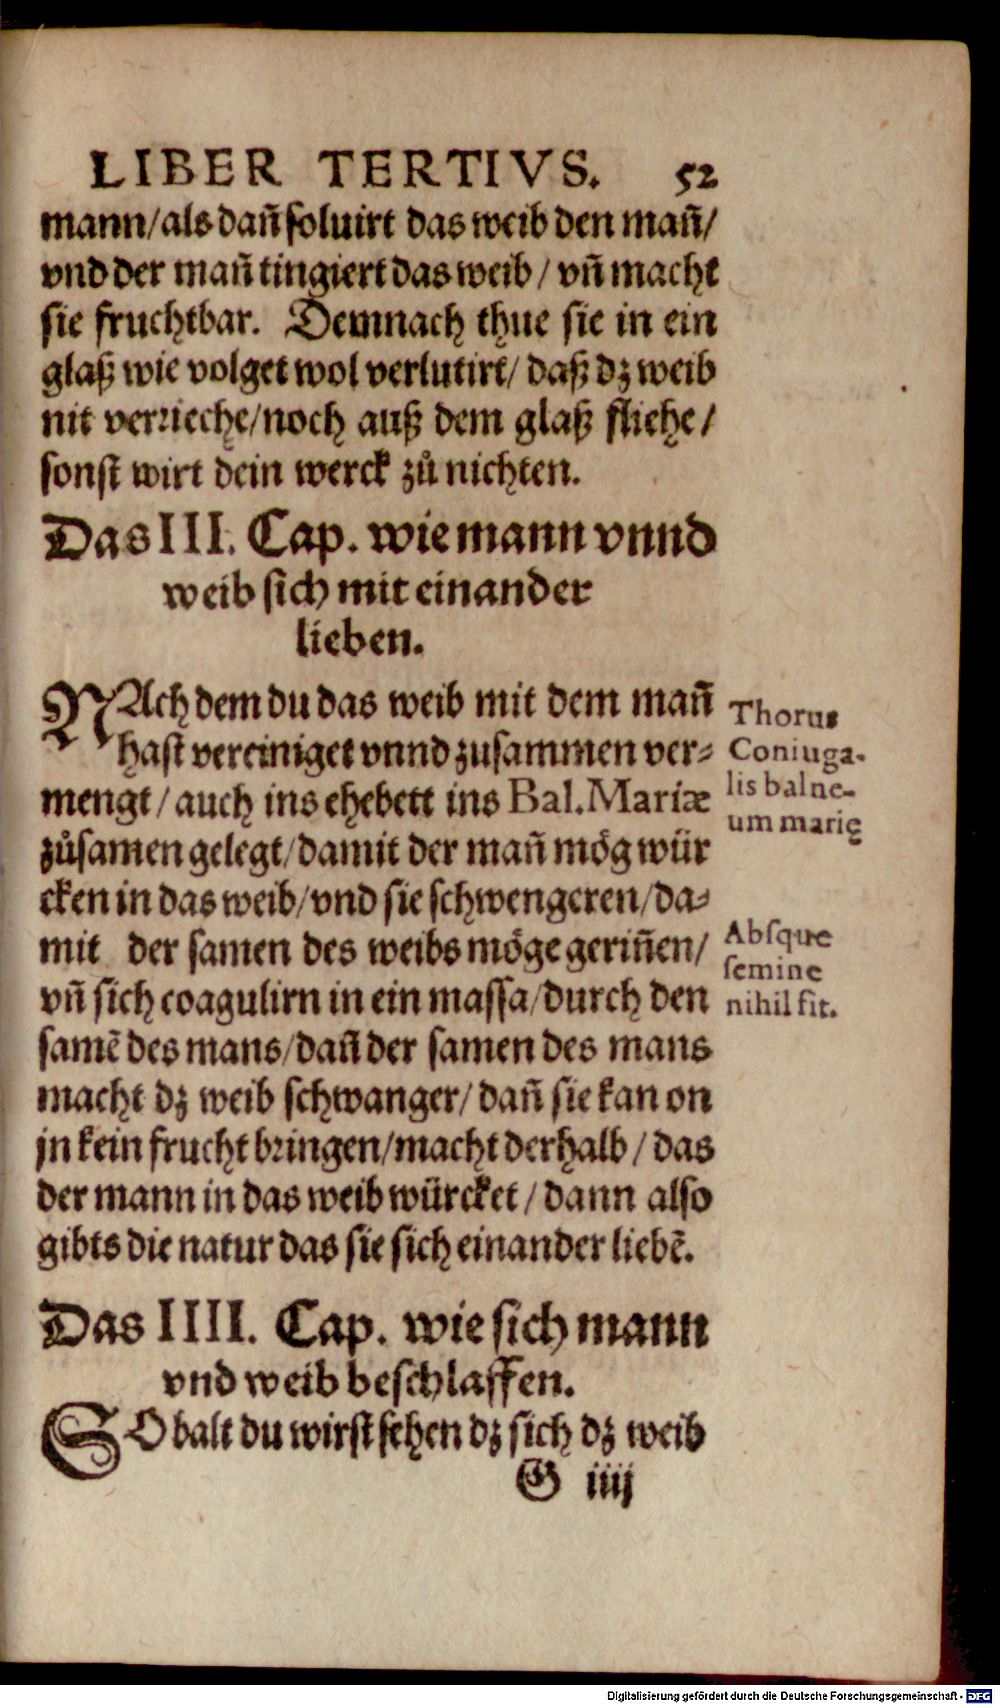 LIBER TERTIVS. 52
mann/als dañ soluirt das weib den mañ/
vnd der mañ tingiert das weib/ vñ macht
sie fruchtbar. Demnach thue sie in ein
glaß wie volget wol verlutirt/ daß dz weib
nit verrieche/noch auß dem glaß fliehe/
sonst wirt dein werck zů nichten.
Das III. Cap. wie mann vnnd
weib sich mit einander
lieben.
NAch dem du das weib mit dem mañ
hast vereiniget vnnd zusammen ver⸗
mengt/ auch ins ehebett ins Bal. Mariæ
zůsamen gelegt/damit der mañ mög wür
cken in das weib/vnd sie schwengeren/da⸗
mit der samen des weibs möge geriñen/
vñ sich coagulirn in ein massa/durch den
samē des mans/dañ der samen des mans
macht dz weib schwanger/ dañ sie kan on
jn kein frucht bringen/macht derhalb/ das
der mann in das weib würcket/ dann also
gibts die natur das sie sich einander liebē.
Thorus
Coniuga-
lis balne-
um marię
Absque
semine
nihil fit.
Das IIII. Cap. wie sich mann
vnd weib beschlaffen.
SO balt du wirst sehen dz sich dz weib
G iiij
Digitalisierung gefördert durch die Deutsche Forschungsgemeinschaft - DFG